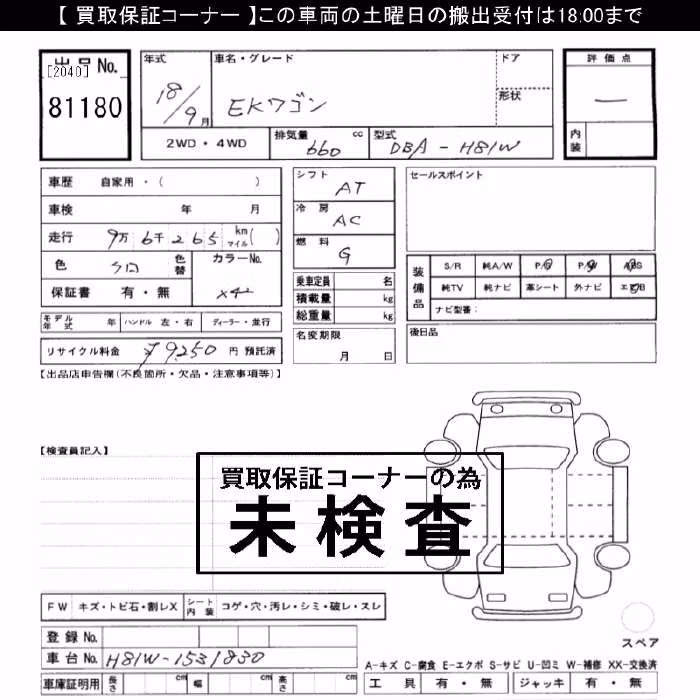 【 買取保証コーナー 】この車両の土曜日の搬出受付は18:00まで
出品 No.
[2040]
81180
年式
18/9月
車名・グレード
EKワゴン
ドア
形状
評価点
—
内装
2WD・4WD
排気量 660 cc
型式 DBA-H81W
車歴 自家用・( )
車検 年 月
走行 9万6千265 km マイル( )
色 クロ 色替
カラーNo. X42
保証書 有・無
モデル年式 年 ハンドル 左・右 ディーラー・並行
リサイクル料金 ¥9250 円 預託済
シフト AT
冷房 AC
燃料 G
乗車定員 名
積載量 kg
総重量 kg
名変期限 月 日
セールスポイント
装備品
S/R 純A/W P/S P/W ABS
純TV 純ナビ 革シート 外ナビ エアB
ナビ型番:
後日品
【出品店申告欄(不良箇所・欠品・注意事項等)】
【検査員記入】
買取保証コーナーの為
未検査
FW キズ・トビ石・割レX シート内装 コゲ・穴・汚レ・シミ・破レ・スレ
登録 No.
車台 No. H81W-1531830
車庫証明用 長さ cm 幅 cm 高さ cm
スペア
A-キズ C-腐食 E-エクボ S-サビ U-凹ミ W-補修 XX-交換済
工具 有・無 ジャッキ 有・無